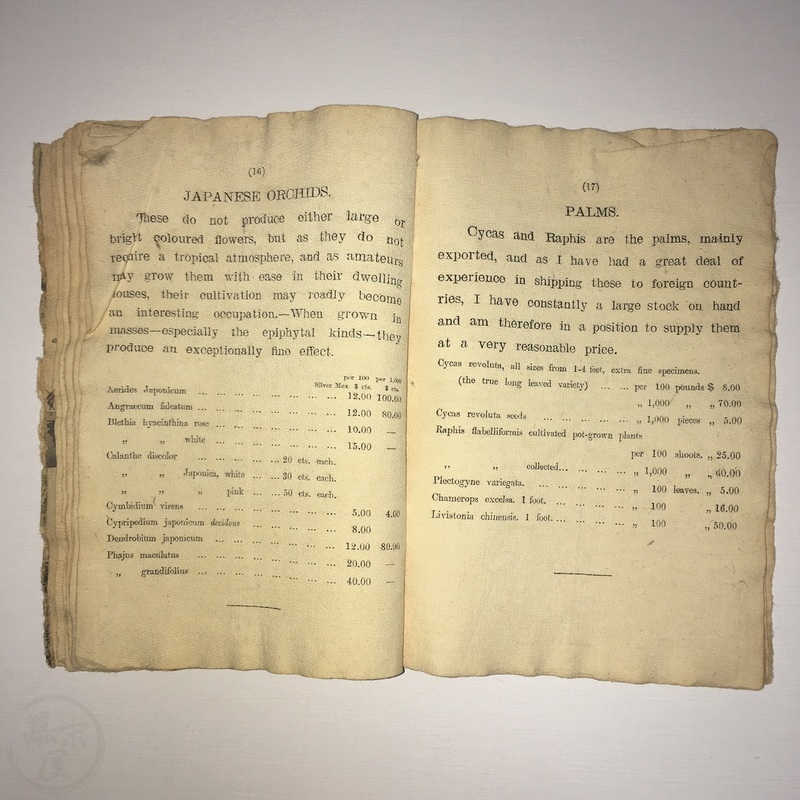 (16)
JAPANESE ORCHIDS.
These do not produce either large or
bright coloured flowers, but as they do not
require a tropical atmosphere, and as amateurs
may grow them with ease in their dwelling
houses, their cultivation may readly become
an interesting occupation.—When grown in
masses—especially the epiphytal kinds—they
produce an exceptionally fine effect.
per 100 per 1,000
Silver Mex. $ cts. $ cts.
Aerides Japonicum ... ... ... ... ... ... 12.00 100.00
Angræcum falcatum ... ... ... ... ... ... 12.00 80.00
Blethia hyacinthina rose ... ... ... ... ... 10.00 —
„ „ white ... ... ... ... ... 15.00 —
Calanthe discolor ... ... ... 20 cts. each.
„ „ Japonica, white ... ... 30 cts. each.
„ „ „ pink ... ... 50 cts. each.
Cymbidium virens ... ... ... ... ... ... 5.00 4.00
Cypripedium japonicum decidous ... ... ... ... 8.00
Dendrobium japonicum ... ... ... ... ... 12.00 80.00
Phajus maculatus ... ... ... ... ... ... 20.00 —
„ grandifolius ... ... ... ... ... ... 40.00 —
(17)
PALMS.
Cycas and Raphis are the palms, mainly
exported, and as I have had a great deal of
experience in shipping these to foreign count-
ries, I have constantly a large stock on hand
and am therefore in a position to supply them
at a very reasonable price.
Cycas revoluta, all sizes from 1-4 feet, extra fine specimens.
(the true long leaved variety) ... ... per 100 pounds $ 8.00
„ 1,000 „ „ 70.00
Cycas revoluta seeds ... ... ... ... „ 1,000 pieces „ 5.00
Raphis flabelliformis cultivated pot-grown plants
per 100 shoots. „ 25.00
„ „ collected... ... ... ... „ 1,000 „ „ 60.00
Plectogyne variegata. ... ... ... ... „ 100 leaves. „ 5.00
Chamerops excelsa. 1 foot. ... ... ... ... „ 100 „ 16.00
Livistonia chinensis. 1 foot.... ... ... ... „ 100 „ 50.00
幕末
屋